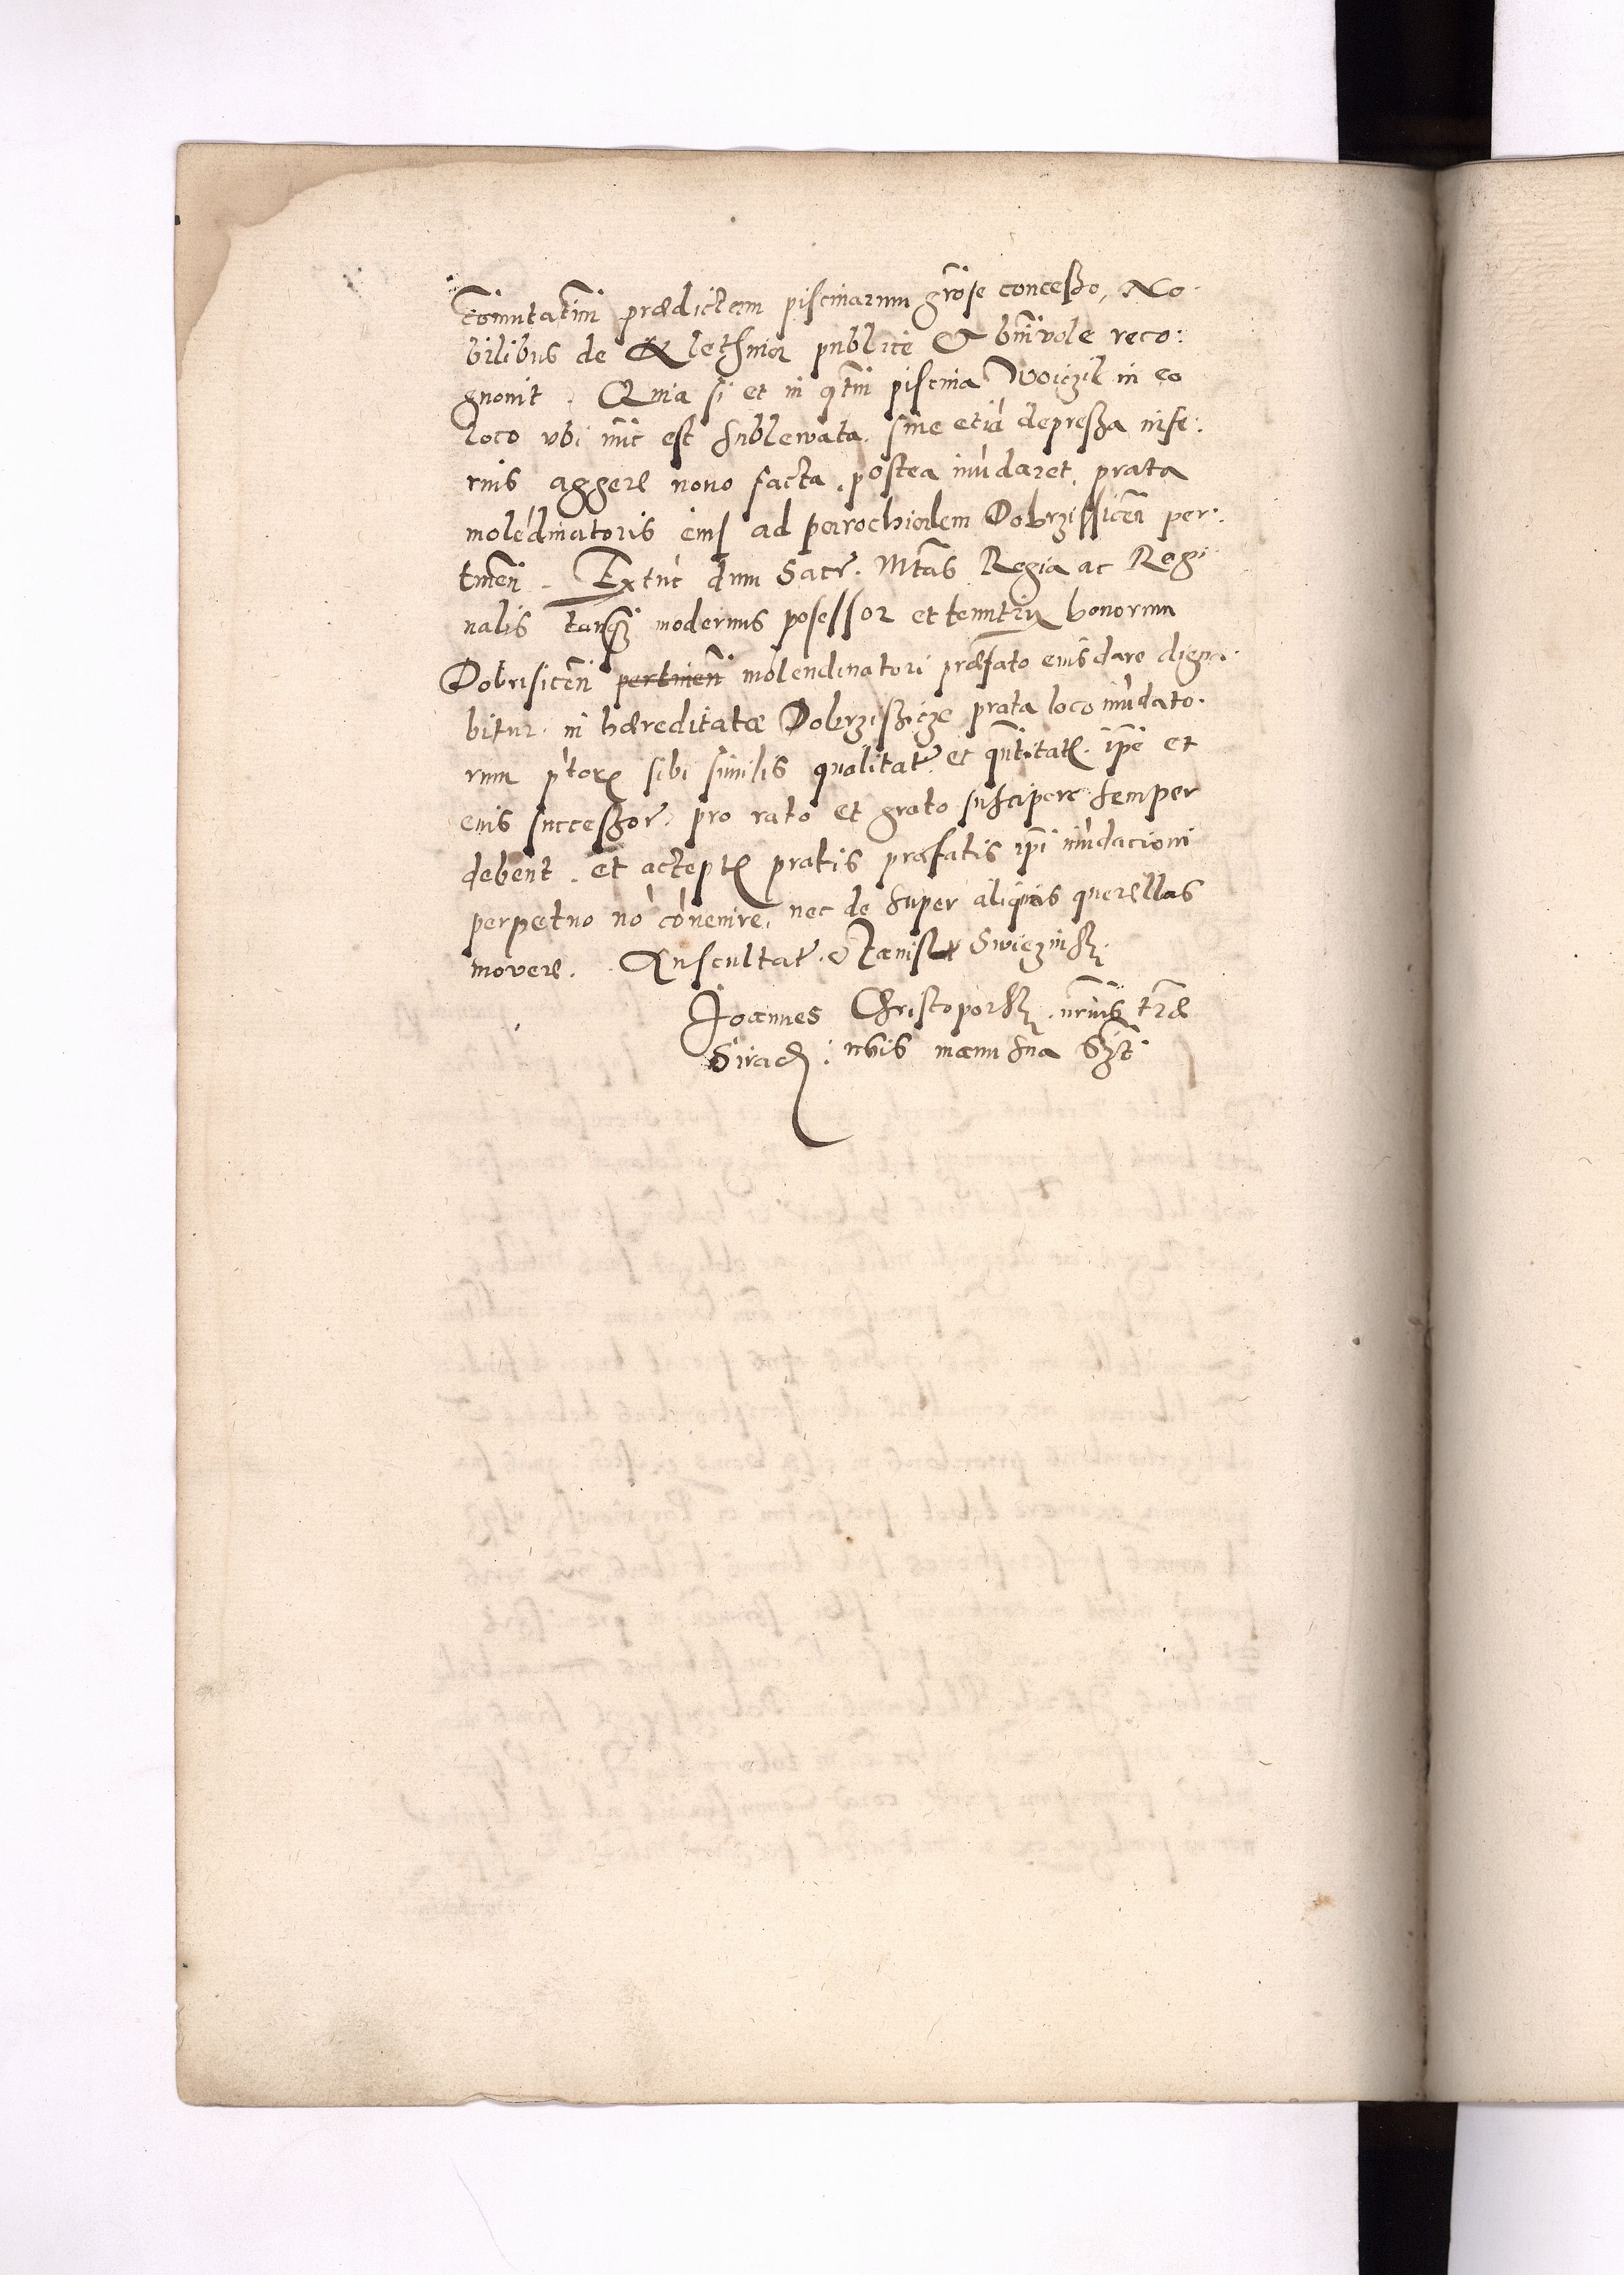 Com̄utatīm prædictam piscinarum gro͞se concesso, No-
bilibus de Klethnia publice & bn̄ivole reco:
gnovit. Quia si et in qtm̄ piscina Woiczik in eo
loco ubi nūc est sublewata. sive etiā depressa infe:
rius aggere novo facta, postea inūdaret, prata
molēdinatoris eius ad parochialem Dobrzissicen̄ per:
tinen̄. Extūc dum Sacr. Mtas Regia ac Regi
nalis tanq̃ modernus posessor et tenutrix bonorum
Dobrisicen̄ pertinen̄ molendinatori præfato eius dare digna-
bitur. in hæreditate Dobrzissicze prata loco inūdato-
rum sibi similis qualitat. et qn̄titat. ip̄e et
eius successor. pro rato et grato suscipere semper
debent. et accept pratis præfatis ip̄i inūdacioni
perpetuo nō cōvenire, nec de super aliquas querellas
movere. Auscultat. Stanislaus Swieczinsk
Joannes Christoporsk. træ
Sirad: manu sua